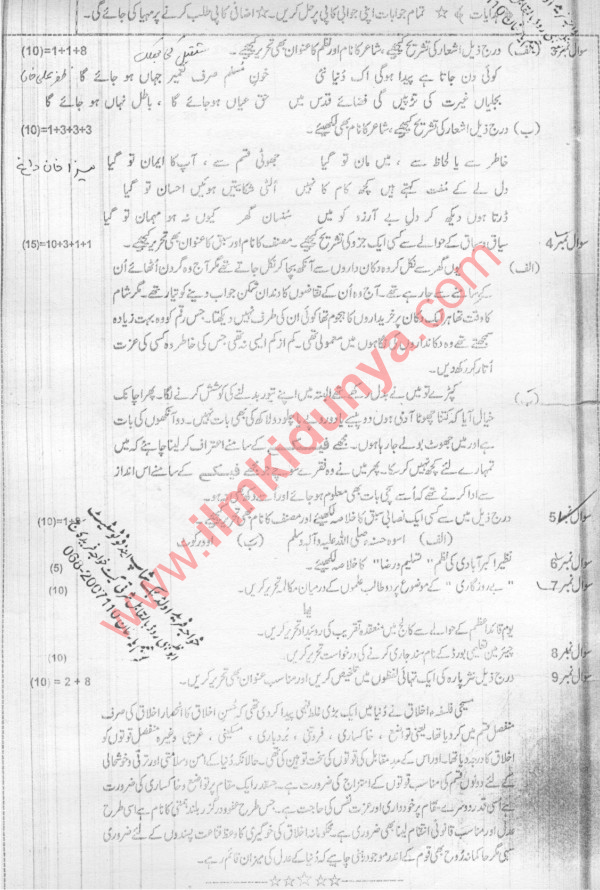 جوابات ☆ تمام جوابات اپنی جوابی کاپی پر حل کریں۔ ☆ اضافی کاپی طلب کرنے پر مہیا کی جائے گی۔
سوال نمبر 3 (الف) درج ذیل اشعار کی تشریح کیجیے، شاعر کا نام اور نظم کا عنوان بھی تحریر کیجیے۔ (10)=1+1+8
کوئی دن جاتا ہے پیدا ہوگی اک دُنیا نئی خونِ مسلم صرف تعمیرِ جہاں ہو جائے گا ظفر علی خان
بجلیاں غیرت کی تڑپیں گی فضائے قدس میں حق عیاں ہو جائے گا ، باطل نہاں ہو جائے گا
(ب) درج ذیل اشعار کی تشریح کیجیے، شاعر کا نام بھی لکھیئے۔ (10)=1+3+3+3
خاطر سے یا لحاظ سے ، میں مان تو گیا جھوٹی قسم سے ، آپ کا ایمان تو گیا
دل لے کے مفت کہتے ہیں کچھ کام کا نہیں اُلٹی شکایتیں ہوئیں احسان تو گیا
ڈرتا ہوں دیکھ کر دلِ بے آرزو کو میں سُنسان گھر کیوں نہ ہو مہمان تو گیا
سوال نمبر 4 سیاق و سباق کے حوالے سے کسی ایک جزو کی تشریح کیجیے۔ مصنف کا نام اور سبق کا عنوان بھی تحریر کیجیے۔ (15)=10+3+1+1
(الف) یوں گھر سے نکل کر وہ دکان داروں سے آنکھ بچا کر نکل جاتے تھے مگر آج وہ گردن اُٹھائے اُن
کے سامنے سے جا رہے تھے۔ آج وہ اُن کے تقاضوں کا دندان شکن جواب دینے کو تیار تھے۔ مگر شام
کا وقت تھا ہر ایک دکان پر خریداروں کا ہجوم تھا کوئی ان کی طرف نہیں دیکھتا۔ جس رقم کو وہ بہت زیادہ
سمجھتے تھے وہ دکانداروں کی نگاہوں میں معمولی تھی۔ کم از کم ایسی نہ تھی جس کی خاطر وہ کسی کی عزت
اُتار کر رکھ دیں۔
کپڑے تو میں نے بدل رکھے تھے البتہ میں اپنے تیور بدلنے کی کوشش کرنے لگا۔ پھر اچانک
خیال آیا کہ کتنا چھوٹا آدمی ہوں دو پیسے یا دو روپے یا چلو دو لاکھ کی بھی بات نہیں۔ دو آنکھوں کی بات
ہے اور میں جھوٹ بولے جا رہا ہوں۔ مجھے کے سامنے اعتراف کر لینا چاہئے کہ میں
تمہارے لئے کچھ نہیں کر سکا۔ پھر میں نے وہ فقرے کے سامنے اس انداز
سے ادا کرنے تھے کہ اُسے سچی بات بھی معلوم ہو جائے اور اُسے دکھ بھی نہ ہو۔
سوال نمبر 5 درج ذیل میں سے کسی ایک نصابی سبق کا خلاصہ لکھیئے اور مصنف کا نام بھی تحریر کیجیے۔
(الف) اسوہ حسنہ صلی اللہ علیہ وآلہ وسلم (ب) اوورکوٹ
سوال نمبر 6 نظیر اکبر آبادی کی نظم "تسلیم و رضا" کا خلاصہ لکھیئے۔ (5)
سوال نمبر 7 "بے روزگاری" کے موضوع پر دو طالب علموں کے درمیان مکالمہ تحریر کریں۔ (10)
یا
یومِ قائد اعظم کے حوالے سے کالج میں منعقدہ تقریب کی روئیداد تحریر کریں۔
سوال نمبر 8 چیئرمین تعلیمی بورڈ کے نام سند جاری کرنے کی درخواست تحریر کریں۔ (10)
سوال نمبر 9 درج ذیل نثر پارہ کی ایک تہائی لفظوں میں تلخیص کریں اور مناسب عنوان بھی تحریر کریں۔ (10) = 2 + 8
مسیحی فلسفہ اخلاق نے دُنیا میں ایک بڑی غلط فہمی پیدا کر دی تھی کہ حُسنِ اخلاق کا انحصار اخلاق کی صرف
منفصل قسم میں کر دیا تھا۔ یعنی تواضع ، خاکساری ، فروتنی ، بُردباری ، مسکینی ، غریبی وغیرہ منفعل قوتوں کو
اخلاق کا درجہ دیا تھا۔ اور اس کے مدمقابل کی قوتوں کی سخت توہین کی تھی۔ حالانکہ دُنیا کے امن و سلامتی اور ترقی و خوشحالی
کے لئے دونوں قسم کی مناسب قوتوں کے امتزاج کی ضرورت ہے۔ جس قدر ایک مقام پر تواضع و خاکساری کی ضرورت
ہے اُسی قدر دوسرے مقام پر خودداری اور عزتِ نفس کی حاجت ہے۔ جس طرح عفو و درگزر بلند ہمتی کا نام ہے اسی طرح
عدل اور مناسب قانونی انتقام لینا بھی ضروری ہے۔ محکومانہ اخلاق کی خوگیری گا دعوٰی قناعت پسندوں کے لئے ضروری
سہی مگر حاکمانہ رُوح بھی قوم کے اندر موجود رہنی چاہیے کہ دُنیا کے عدل کی میزان قائم رہے۔
☆☆☆☆☆
www.ilmkidunya.com